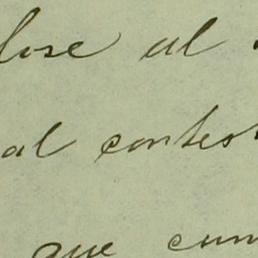 lose al
al contest
que cum